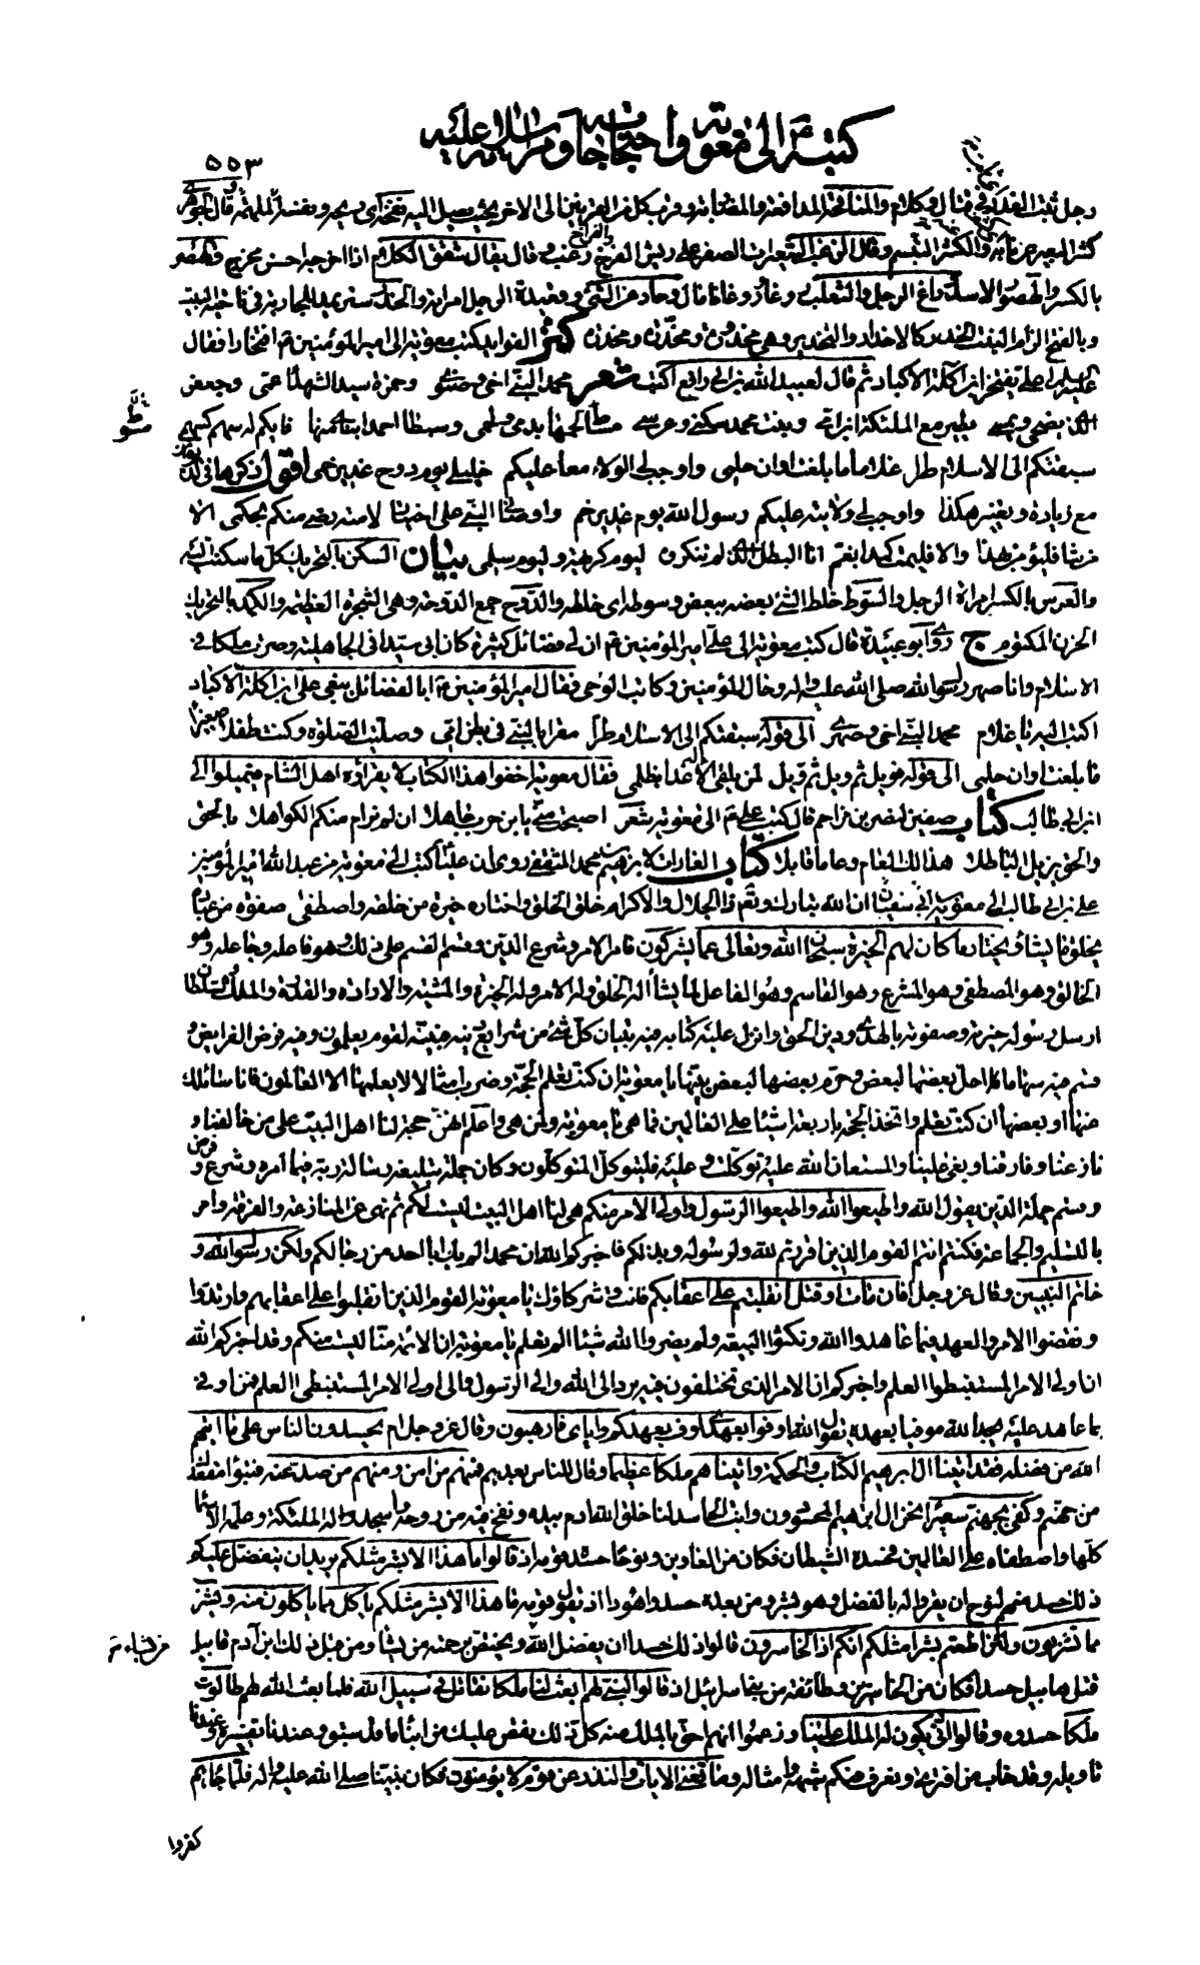 كتبه ع الى معوية واحتجاجاته ومراسلاته عليه
٥٥٣
رجل ثبت الغدر في قتال وكلام والمنافحة المدافعة والمضاربة وقرب كل من القرنين الى الاخر بحيث يصل اليه نفحة اى ريحه ونفسه قال الجوهرى
كشر البعير عن نابه والكشر التبسم وقال الزغب الشعيرات الصفر على ريش الفرخ والفراخ زغب وقال يقال شقق الكلام اذا اخرجه احسن مخرج
بالكسر والهصور الاسد وراغ الرجل والثعلب روغا وروغانا مال وحاد عن الشئ وقعيدة الرجل امراته والخدر ستر يمد للجارية في ناحية البيت
وبالفتح الزام البنت الخدر كالاخدار والتخدير وهى مخدورة ومخدرة ومخدرة كنز الفوائد كتب معوية الى امير المؤمنين ع افتخارا فقال
عليه السلم اعلى يفتخر ابن اكلة الاكباد ثم قال لعبيد الله بن ابي رافع اكتب شعر محمد النبي اخى وصنوى وحمزة سيد الشهداء عمى وجعفر
الذى يضحى ويمسى يطير مع الملئكة ابن امى وبنت محمد سكنى وعرسى مساط لحمها بدمى ولحمى وسبطا احمد ابناى منها فايكم له سهم كسهمى
سبقتكم الى الاسلام طرا غلاما ما بلغت اوان حلمى واوجب لى الولاء معا عليكم خليلى يوم دوح غدير خم اقول ذكرها في الديوان
مع زيادة وتغيير هكذا واوجب لى ولايته عليكم رسول الله يوم غدير خم واوصانى النبي على اختيار لامته رضى منكم بحكمى الا
من شاء فليؤمن بهذا والا فليمت كمدا بغم انا البطل الذى لم تنكروه ليوم كريهة وليوم سلم بيان السكن بالتحريك كل ما سكنت اليه
والعرس بالكسر امراة الرجل والسوط خلط الشئ بعضه ببعض وسوطه اى خلطه والدوح جمع الدوحة وهى الشجرة العظيمة والكمد بالتحريك
الحزن المكتوم ج روى ابو عبيدة قال كتب معوية الى على امير المؤمنين ع ان لى فضائل كثيرة كان ابى سيدا في الجاهلية وصرت ملكا في
الاسلام وانا صهر رسول الله صلى الله عليه واله وخال المؤمنين وكاتب الوحى فقال امير المؤمنين ع ابا لفضائل يبغى على ابن اكلة الاكباد
اكتب اليه يا غلام محمد النبي اخى وصهرى الى قوله سبقتكم الى الاسلام طرا مقرا بالنبي في بطن امى وصليت الصلوة وكنت طفلا صغيرا
ما بلغت اوان حلمى الى قوله فويل ثم ويل ثم ويل لمن يلقى الاله غدا بظلمى فقال معوية اخفوا هذا الكتاب لا يقراؤه اهل الشام فيميلوا الى
ابن ابي طالب كتاب صفين لنصر بن مزاحم قال كتب على ع الى معوية شعر اصبحت منى يا ابن حرب جاهلا ان لم نرام منكم الكواهلا بالحق
والحق يزيل الباطلا هذا لك العام وعاما قابلا كتاب الغارات لابرهيم بن محمد الثقفى روى ان عليا ع كتب الى معوية من عبد الله امير المؤمنين
على بن ابي طالب الى معوية بن ابي سفيان ان الله تبارك وتعم ذا الجلال والاكرام خلق الخلق واختار خيرة من خلقه واصطفى صفوة من عباده
يخلق ما يشاء ويختار ما كان لهم الخيرة سبحان الله وتعالى عما يشركون فامر الامر وشرع الدين وقسم القسم على ذلك وهو فاعله وجاعله وهو
الخالق وهو المصطفى وهو المشرع وهو القاسم وهو الفاعل لما يشاء له الخلق وله الامر وله الخيرة والمشية والارادة والقدرة والملك والسلطان
ارسل رسوله خيرته وصفوته بالهدى ودين الحق وانزل عليه كتابه فيه تبيان كل شئ من شرايع دينه فبينه لقوم يعلمون وفيه فرض الفرايض و
قسم فيه سهاما احل بعضها لبعض وحرم بعضها لبعض بينها يا معوية ان كنت تعلم الحجة وضرب امثالا لا يعلمها الا العالمون فانا سائلك
عنها او بعضها ان كنت تعلم واتخذ الحجة باربعة اشياء على العالمين فما هى يا معوية ولمن هى واعلم انهن حجة لنا اهل البيت على من خالفنا و
نازعنا وفارقنا وبغى علينا والمستعان الله عليه توكلت وعليه فليتوكل المتوكلون وكان جملة تبليغه رسالة ربه فيما امره وشرع وفرض
وقسم جملة الدين يقول الله واطيعوا الله واطيعوا الرسول واولى الامر منكم هى لنا اهل البيت ليست لكم ثم نهى عن المنازعة والفرقة وامر
بالتسليم والجماعة فكنتم انتم القوم الذين اقررتم لله ولرسوله وبذلكم فاخبركم الله ان محمدا لم يك ابا احد من رجالكم ولكن رسول الله و
خاتم النبيين وقال عز وجل افان مات او قتل انقلبتم على اعقابكم فانت وشركاؤك يا معوية القوم الذين انقلبوا على اعقابهم وارتدوا
ونقضوا الامر والعهد فيما عاهدوا الله ونكثوا البيعة ولم يضروا الله شيئا الم تعلم يا معوية ان الائمة منا ليست منكم وقد اخبركم الله
ان اولى الامر المستنبطوا العلم واخبركم ان الامر الذى تختلفون فيه يرد الى الله والى الرسول والى اولى الامر المستنبطى العلم فمن اوفى
بما عاهد عليه يجد الله موفيا بعهده يقول الله اوفوا بعهدى اوف بعهدكم واياى فارهبون وقال عز وجل ام يحسدون الناس على ما اتيهم
الله من فضله فقد اتينا ال ابرهيم الكتاب والحكمة واتيناهم ملكا عظيما وقال للناس بعدهم فمنهم من امن ومنهم من صد عنه فتبوأ مقعدك
من جهنم وكفى بجهنم سعيرا نحن ال ابرهيم المحسودون وانت الحاسد لنا خلق الله ادم بيده ونفخ فيه من روحه واسجد له الملئكة وعلمه الاسماء
كلها واصطفاه على العالمين فحسده الشيطان فكان من الغاوين ونوحا حسده قومه اذ قالوا ما هذا الا بشر مثلكم يريد ان يتفضل عليكم
ذلك حسد منهم لنوح ان يقروا له بالفضل وهو بشر ومن بعده حسدوا هودا اذ يقول قومه ما هذا الا بشر مثلكم ياكل مما ياكلون منه ويشرب
مما تشربون ولئن اطعتم بشرا مثلكم انكم اذا لخاسرون قالوا ذلك حسدا ان يفضل الله ويختص برحمته من يشاء ومن قبل ذلك ابن آدم قابيل
قتل هابيل حسدا فكان من الخاسرين وطائفة من بنى اسرائيل اذ قالوا لنبي لهم ابعث لنا ملكا نقاتل في سبيل الله فلما بعث الله لهم طالوت
ملكا حسدوه وقالوا انى يكون له الملك علينا وزعموا انهم احق بالملك منه كل ذلك نقص عليك من انباء ما قد سبق وعندنا تفسيره وعندنا
تاويله وقد خاب من افترى ونعرف فيكم شبهه وامثاله وما تغنى الايات والنذر عن قوم لا يؤمنون فكان نبينا صلى الله عليه واله فلما جاءهم
كفروا